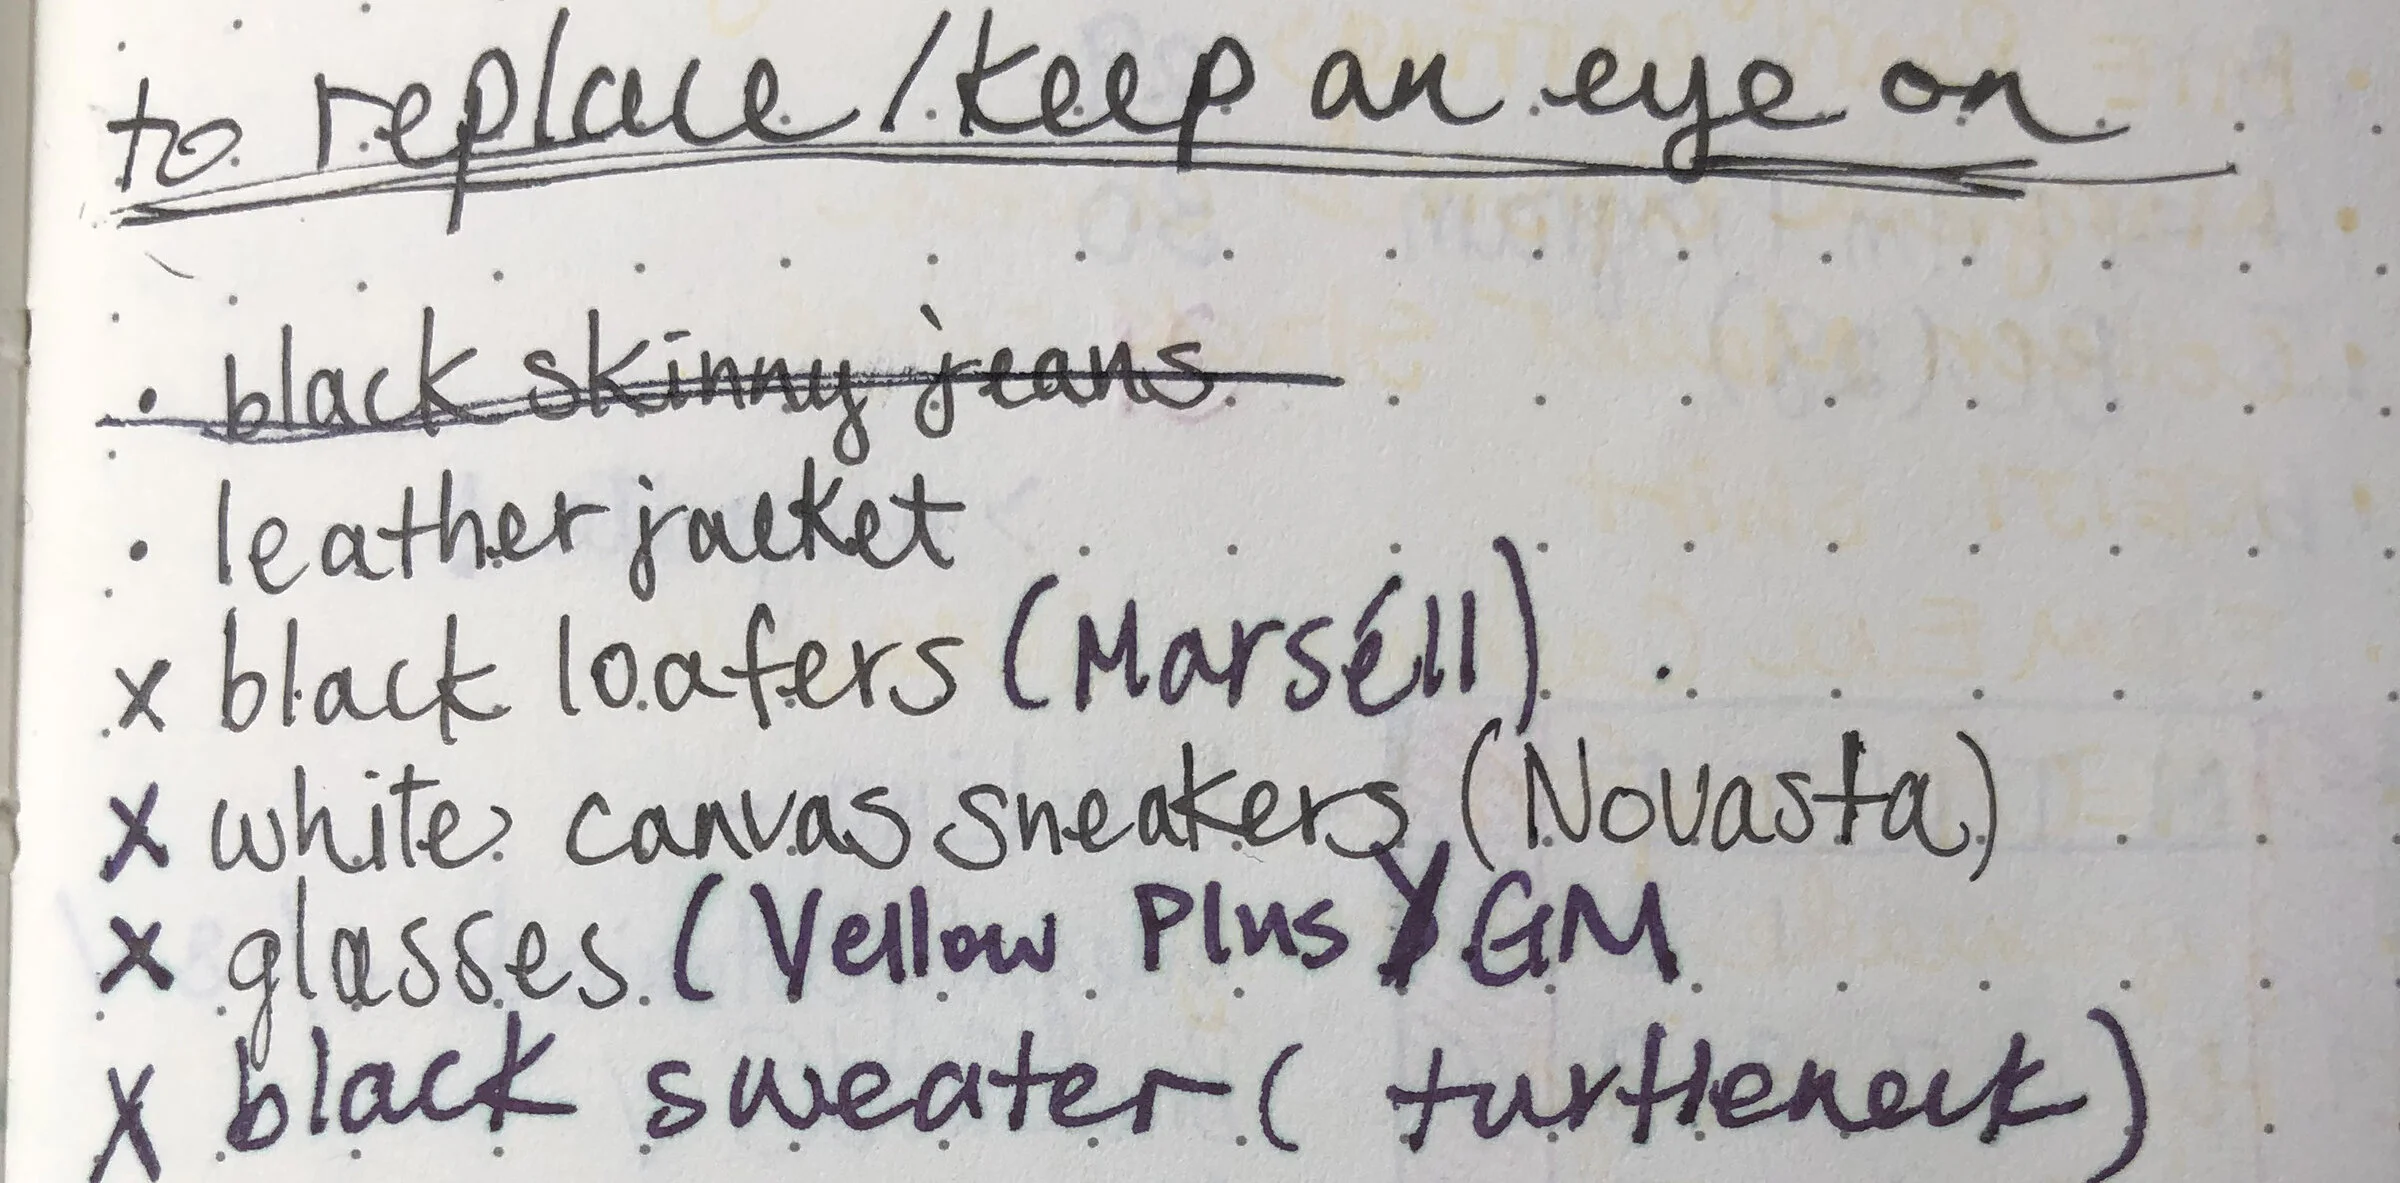 to replace/keep an eye on
• black skinny jeans
• leather jacket
x black loafers (Marséll)
x white canvas sneakers (Novasta)
x glasses (Yellow Plus) GM
x black sweater (turtleneck)